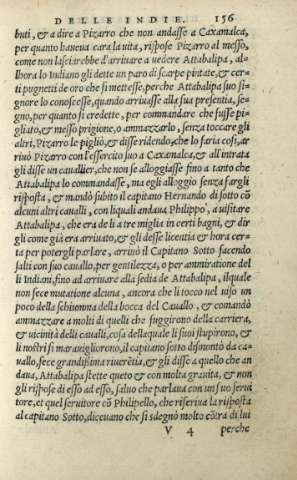 DELLE INDIE. 156
buti, & a dire a Pizarro che non andasse a Caxamalca,
per quanto haueua cara la uita, rispose Pizarro al messo,
come non lasciarebbe d'arriuare a uedere Attabalipa, al-
lhora lo Indiano gli dette un paro di scarpe pintate, & cer-
ti pugnetti de oro che si mettesse, perche Attabalipa suo si-
gnore lo conoscesse, quando arriuasse alla sua presentia, se-
gno, per quanto si credette, per commandare che fusse pi-
gliato, & messo prigione, o ammazzarlo, senza toccare gli
altri, Pizarro le pigliò, & disse ridendo, che lo faria cosi, ar
riuò Pizarro con l'essercito suo a Caxamalca, & all'intrata
gli disse un cauallier, che non se alloggiasse fino a tanto che
Attabalipa lo commandasse, ma egli alloggiò senza fargli
risposta, & mandò subito il capitano Hernando di sotto cō
alcuni altri caualli, con liquali andaua Philippo, a uisitare
Attabalipa, che era de li a tre miglia in certi bagni, & dir
gli come già era arriuato, & gli desse licentia & hora cer-
ta per potergli parlare, arriuò il Capitano Sotto facendo
salti con suo cauallo, per gentilezza, o per ammiratione del
li Indiani, fino ad arriuare alla sedia de Attabalipa, ilquale
non fece mutatione alcuna, ancora che li tocco nel uiso un
poco della schiumma della bocca del Cauallo, & comandò
ammazzare a molti di quelli che fuggirono della carriera,
& uicinità delli caualli, cosa dellaquale li suoi stupirono, &
li nostri si marauigliorono, il capitano sotto dismontò da ca-
uallo, fece grandissima riuerētia, & gli disse a quello che an
daua, Attabalipa stette queto & con molta grauita, & non
gli rispose di esso ad esso, saluo che parlaua con un suo serui
tore, et quel seruitore cō Philipello, che riferiua la risposta
al capitano Sotto, diceuano che si sdegnò molto cōtra di lui
V 4 perche